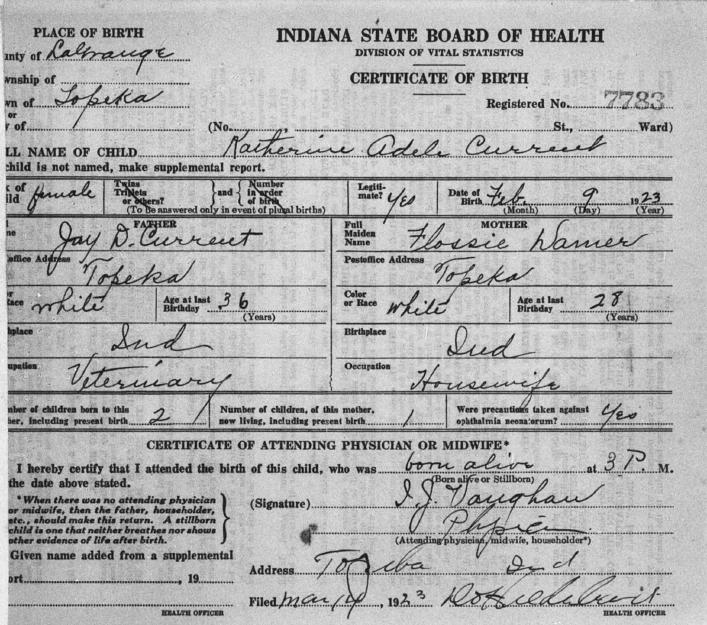 PLACE OF BIRTH
INDIANA STATE BOARD OF HEALTH
DIVISION OF VITAL STATISTICS
CERTIFICATE OF BIRTH
unty of LaGrange
wnship of
wn of Topeka
or
y of
Registered No. 7783
(No. St., Ward)
LL NAME OF CHILD Katherine Adele Current
child is not named, make supplemental report.
x of ild female
Twins Triplets or others?
and
Number in order of birth
(To be answered only in event of plural births)
Legiti-mate? Yes
Date of Birth Feb. 9 1923
(Month) (Day) (Year)
FATHER
me Jay D. Current
MOTHER
Full Maiden Name Flossie Warner
office Address
Topeka
Postoffice Address
Topeka
or Race white
Age at last Birthday 36
(Years)
Color or Race white
Age at last Birthday 28
(Years)
hplace
Ind
Birthplace
Ind
upation
Veterinary
Occupation
Housewife
mber of children born to this her, including present birth 2
Number of children, of this mother, now living, including present birth 1
Were precautions taken against ophthalmia neonatorum? Yes
CERTIFICATE OF ATTENDING PHYSICIAN OR MIDWIFE*
I hereby certify that I attended the birth of this child, who was born alive at 3 P. M.
(Born alive or Stillborn)
the date above stated.
*When there was no attending physician
or midwife, then the father, householder,
etc., should make this return. A stillborn
child is one that neither breathes nor shows
other evidence of life after birth.
(Signature) I. J. Vaughan
(Attending physician, midwife, householder*)
Given name added from a supplemental
ort , 19
Address Topeka Ind
Filed Mar 14, 1923
HEALTH OFFICER
HEALTH OFFICER